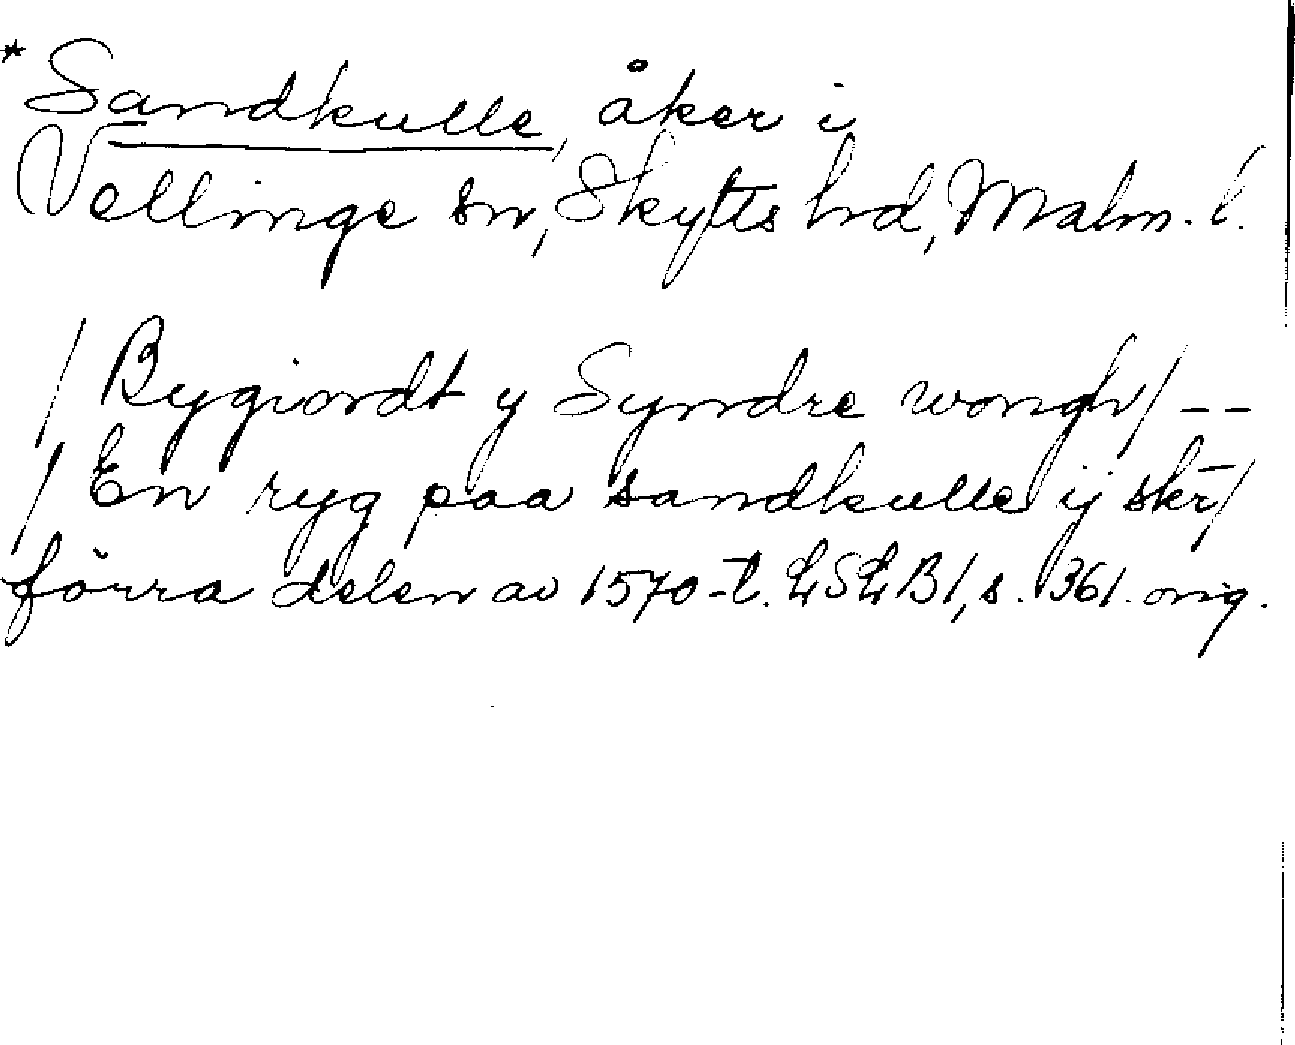 * Sandkulle, åker i
Vellinge sn, Skytts hd, Malm. l.
/ Bygiordt y Syndre wongh / --
/ En ryg paa sandkulle ij skr /
förra delen av 1570-t. LSLB1, s. 361. orig.